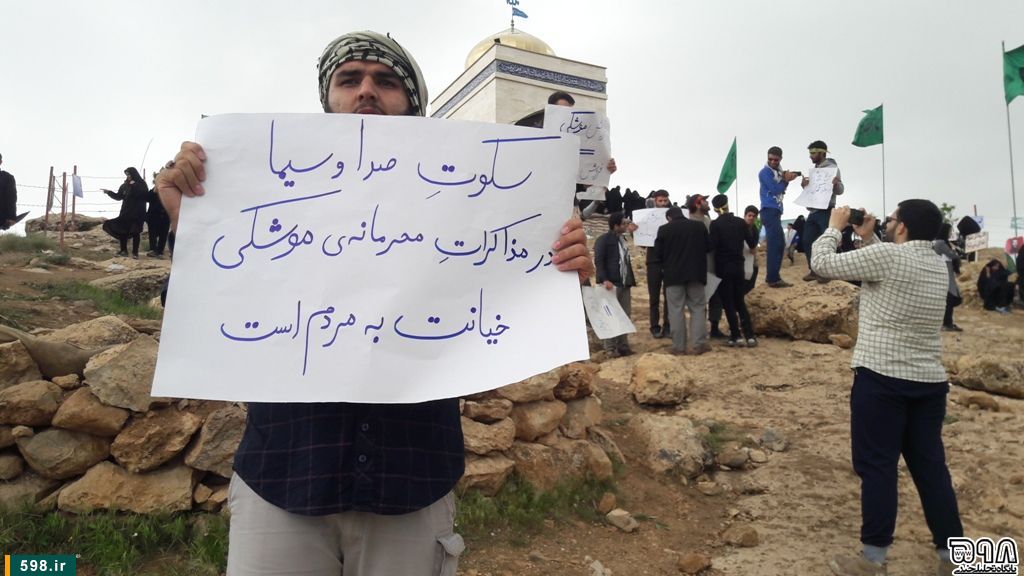 سکوتِ صدا و سیما
در مذاکراتِ محرمانه‌ی موشکی
خیانت به مردم است
موشکی
598.ir
۵۹۸